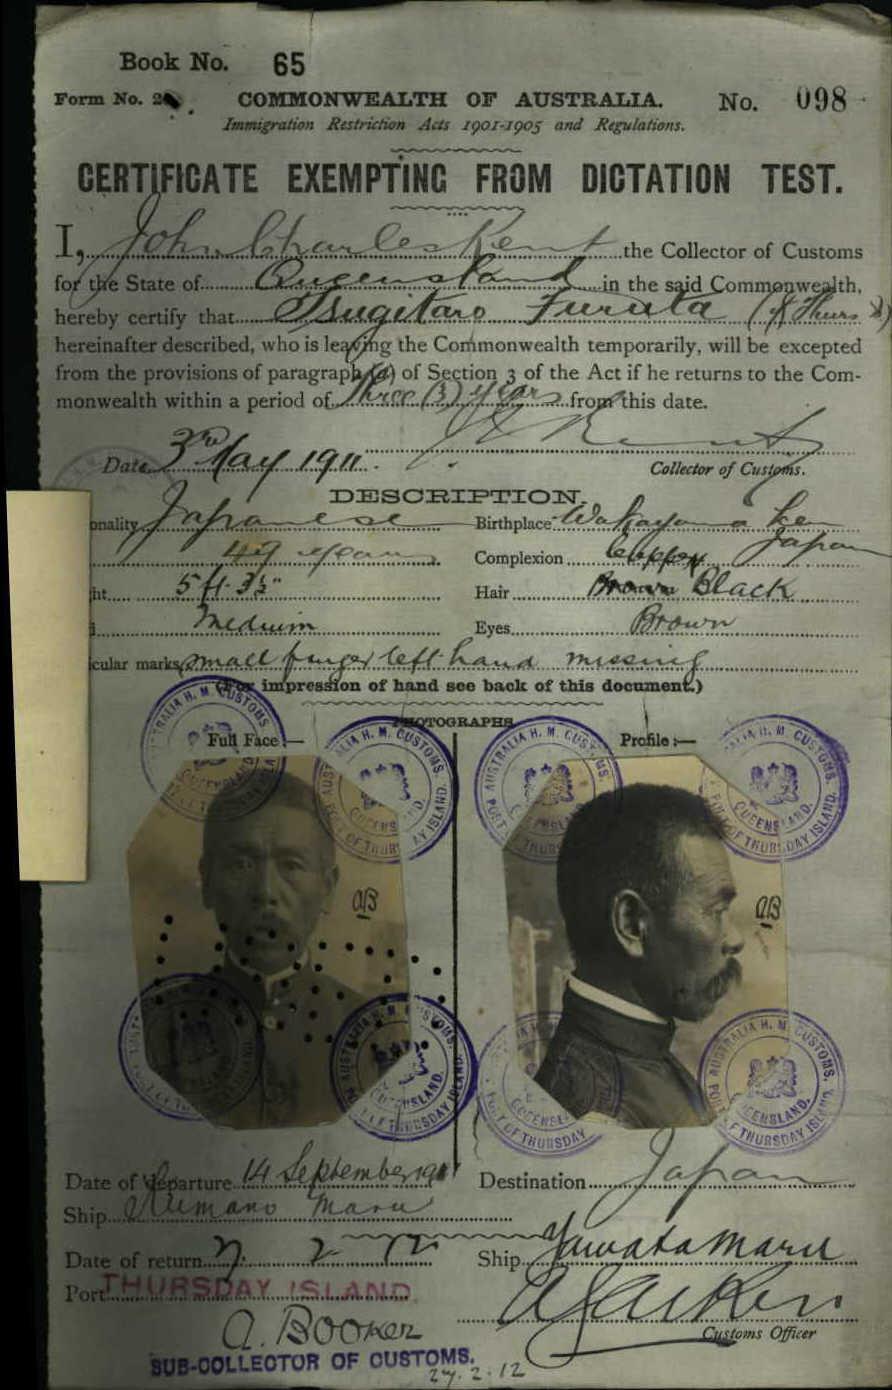 Book No. 65
Form No. 2
COMMONWEALTH OF AUSTRALIA. No. 098
Immigration Restriction Acts 1901-1905 and Regulations.
CERTIFICATE EXEMPTING FROM DICTATION TEST.
I, John Charles Kent the Collector of Customs
for the State of Queensland in the said Commonwealth,
hereby certify that Tsugitaro Furuta
hereinafter described, who is leaving the Commonwealth temporarily, will be excepted
from the provisions of paragraph (a) of Section 3 of the Act if he returns to the Com-
monwealth within a period of Three (3) years from this date.
Date 3rd May 1911.
Collector of Customs.
DESCRIPTION.
onality Japanese Birthplace Wakayama Ken Japan
49 years Complexion Copper
ht 5 ft. 3½" Hair Brown Black
Medium Eyes Brown
icular marks small finger left hand missing
(For impression of hand see back of this document.)
PHOTOGRAPHS
Full Face:— Profile:—
AUSTRALIA H. M. CUSTOMS. QUEENSLAND. PORT OF THURSDAY ISLAND.
AB
AB
Date of departure 14 September 1911 Destination Japan
Ship Kumano Maru
Date of return 27. 2. 12 Ship Yawata Maru
Port THURSDAY ISLAND
A. Booker
Customs Officer
SUB-COLLECTOR OF CUSTOMS.
27.2.12